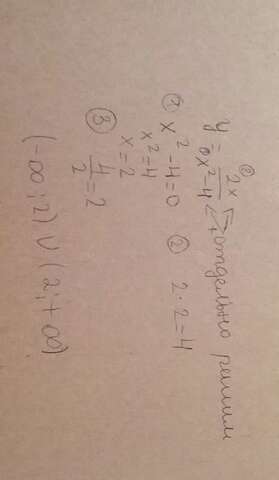 ②
y = 2x / x²-4 отдельно решим
① x²-4=0 ② 2·2=4
x²=4
x=2
③ 4/2=2
(-∞;2) ∪ (2;+∞)